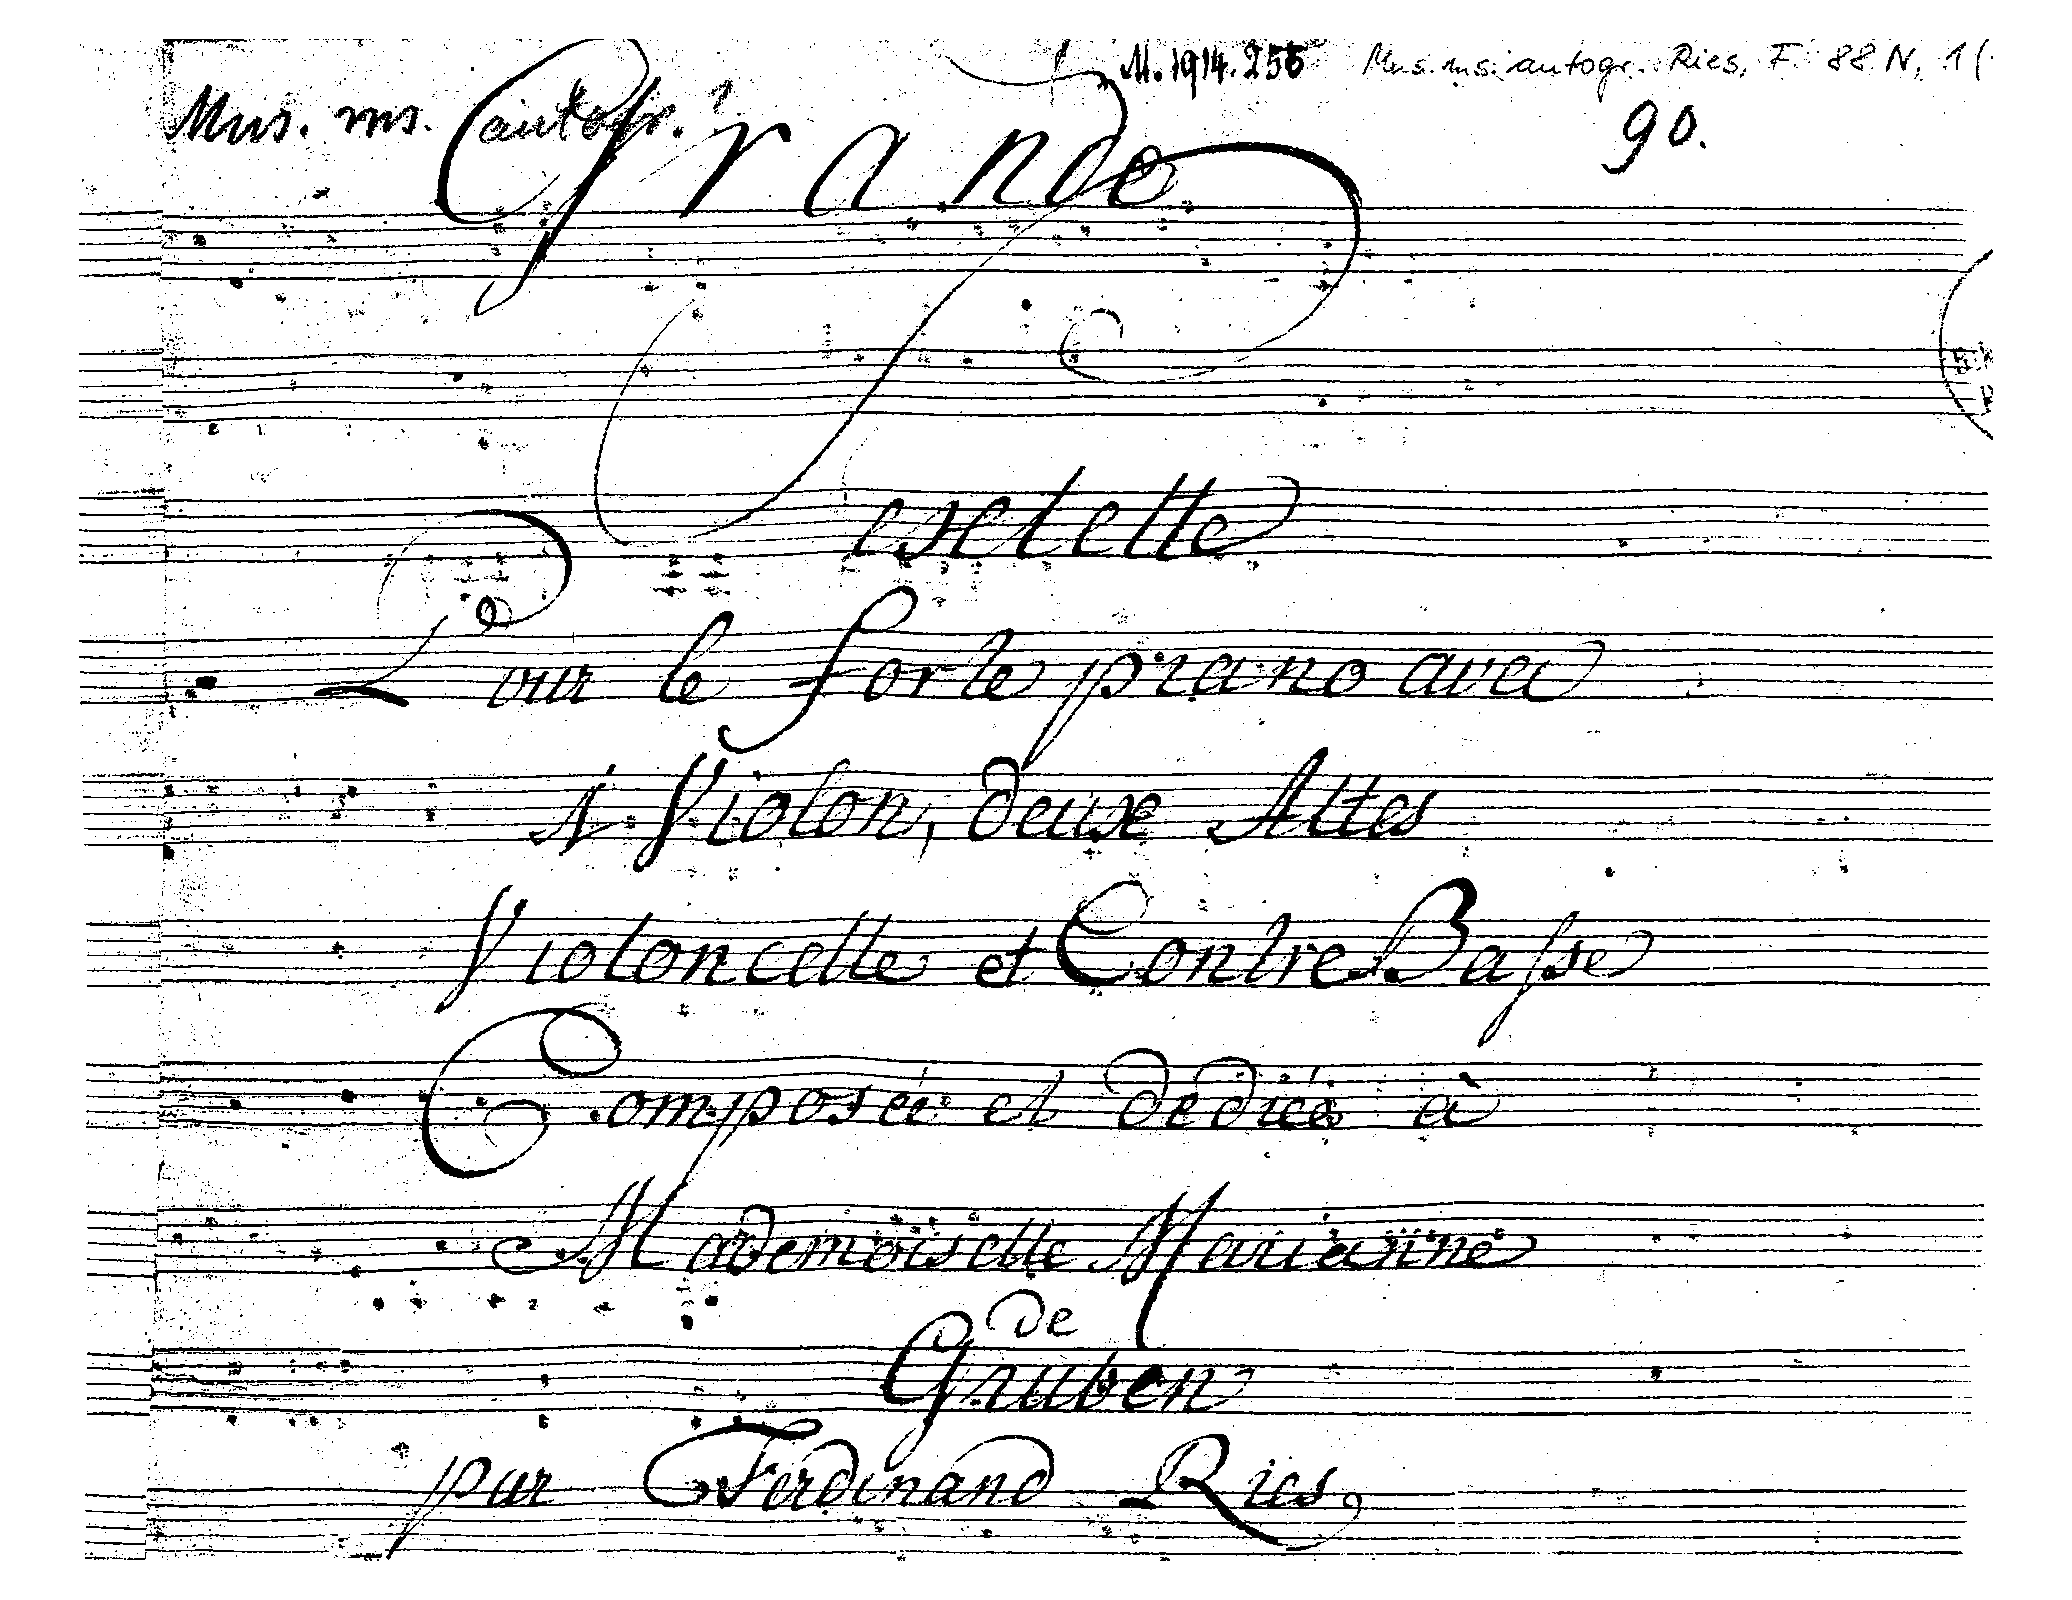 M. 1914. 256 Mus. ms. autogr. Ries, F. 88 N, 1 (
Mus. ms. autogr.
90.
Grande
Sextette
Pour le Forte piano avec
1 Violon, deux Altes
Violoncelle et Contre Basse
Composée et dediée à
Mademoiselle Marianne
de
Gruben
par Ferdinand Ries,